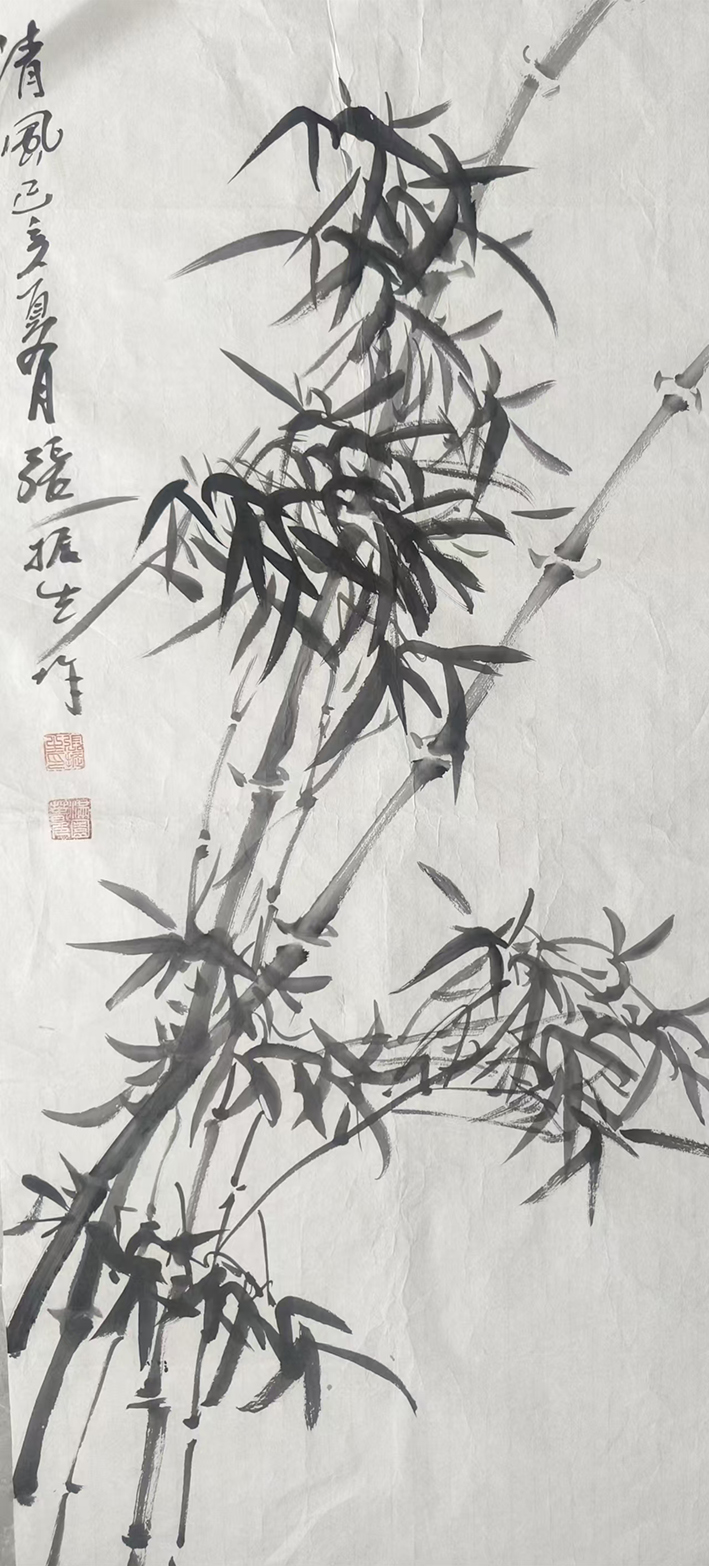 清風己亥夏月張振生作